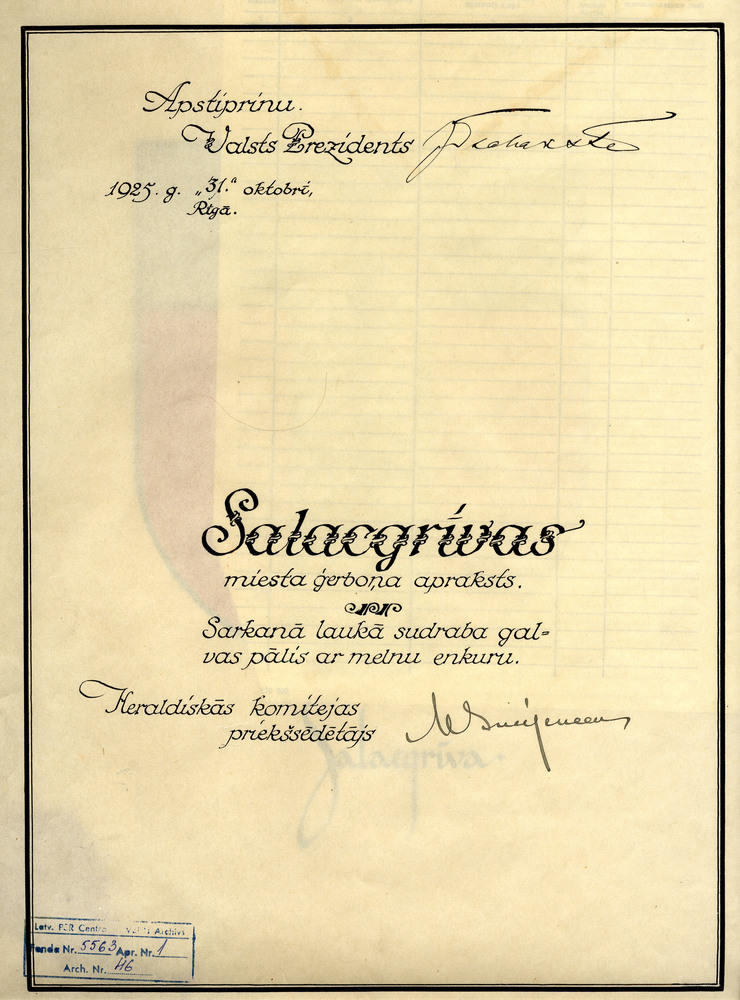 Apstiprinu.
Valsts Prezidents JTschakste
1925. g. „31.“ oktobrī,
Rīgā.
Salacgrīvas
miesta ģerboņa apraksts.
Sarkanā laukā sudraba gal=
vas pālis ar melnu enkuru.
Heraldiskās komitejas
priekšsēdētājs
Salacgrīva.
Latv. PSR Centr Valsts Arhīvs
Fonds Nr. 5563 Apr. Nr. 1
Arch. Nr. 46